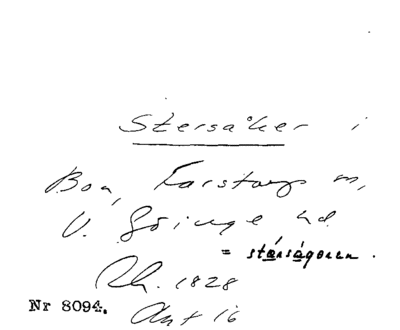 Stersåker i
Boa, Farstorps sn,
V. Göinge hd
= stærsågoren.
Rh. 1828
Nr 8094. Ant 16